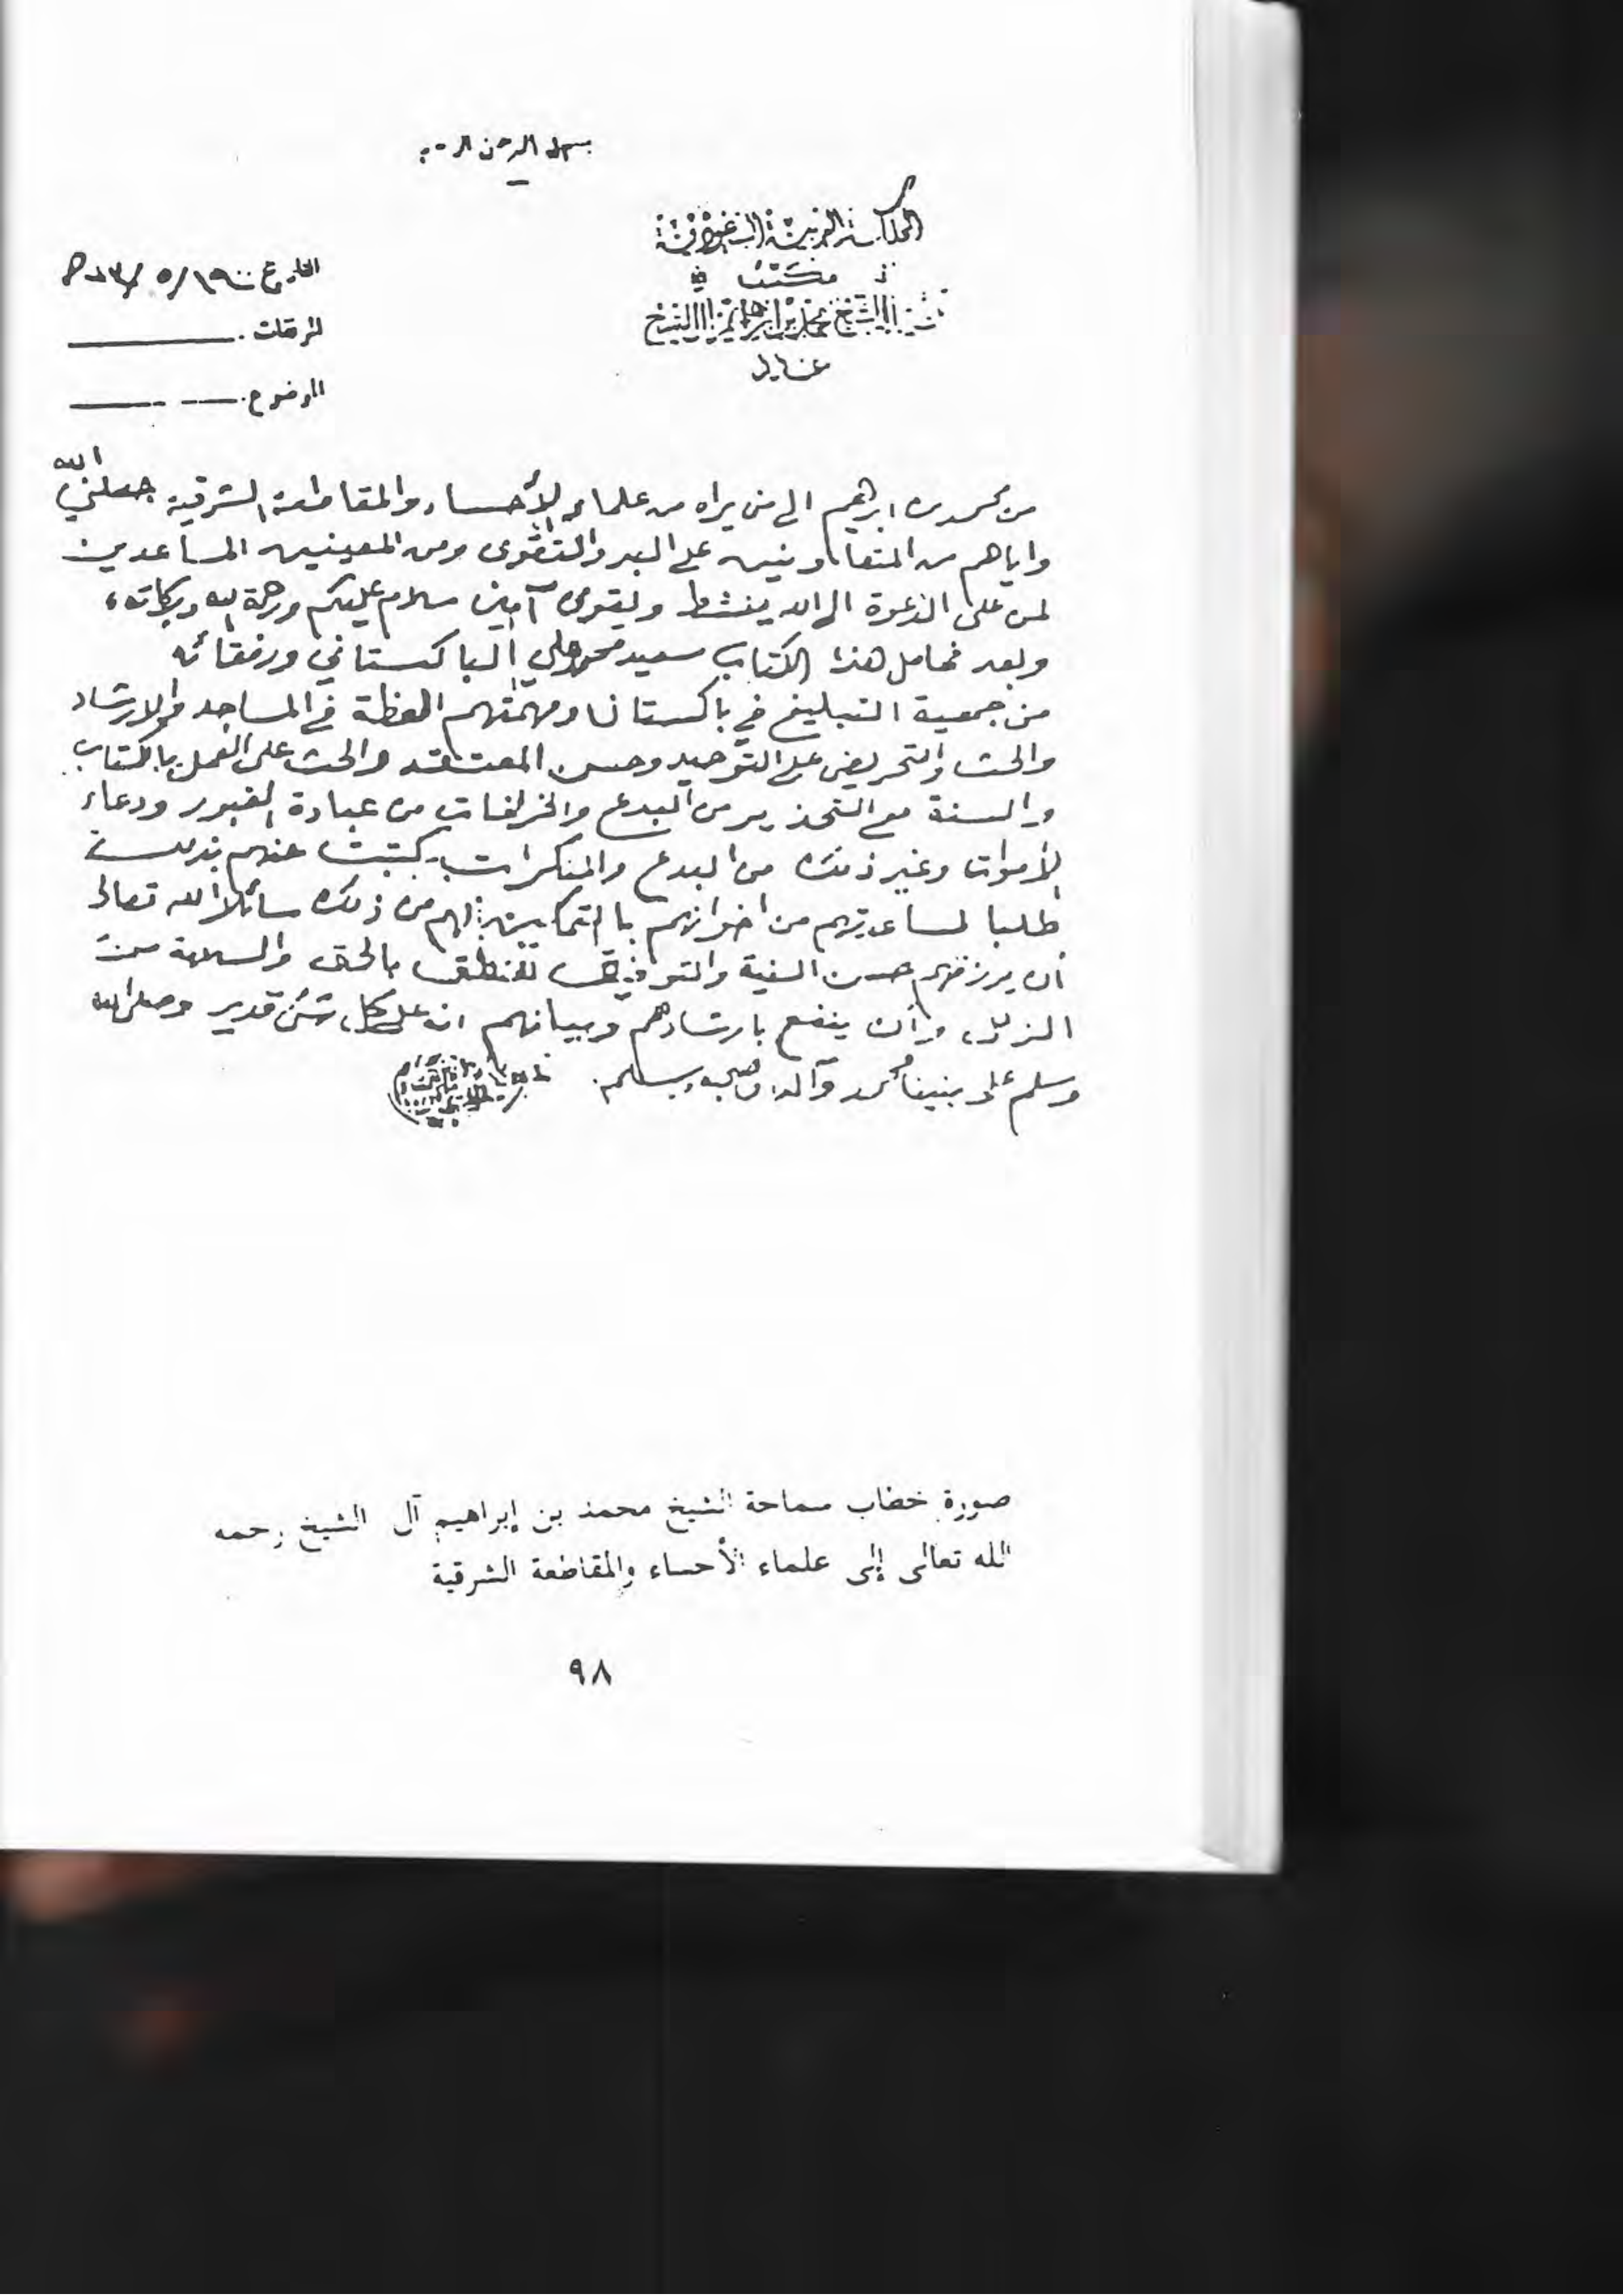 المملكة العربية السعودية
مكتب
الشيخ محمد بن ابراهيم آل الشيخ
التاريخ ١٩/٥/
المرفقات
الموضوع
من محمد بن ابرهيم الى من يراه من علماء الأحساء والمقاطعة الشرقية جعلني الله
واياهم من المتعاونين على البر والتقوى ومن المعينين المساعدين
لمن على الدعوة الى الله ينشط ويقوى آمين سلام عليكم ورحمة الله وبركاته،
وبعد فحامل هذا الكتاب سعيد محمد علي الباكستاني ورفقائه
من جمعية التبليغ في باكستان ومهمتهم العظة في المساجد والارشاد
والحث والتحريض على التوحيد وحسن المعتقد والحث على العمل بالكتاب
والسنة مع التحذير من البدع والخرافات من عبادة القبور ودعاء
الأموات وغير ذلك من البدع والمنكرات كتبت عنهم بذلك
طلبا لمساعدتهم من اخوانهم بالتمكين لهم من ذلك سائلا الله تعالى
أن يرزقهم حسن النية والتوفيق للنطق بالحق والسلامة من
الزلل وأن ينفع بارشادهم وبيانهم انه على كل شئ قدير وصلى الله
وسلم على نبينا محمد وآله وصحبه وسلم.
صورة خطاب سماحة الشيخ محمد بن إبراهيم آل الشيخ رحمه
الله تعالى إلى علماء الأحساء والمقاطعة الشرقية
٩٨